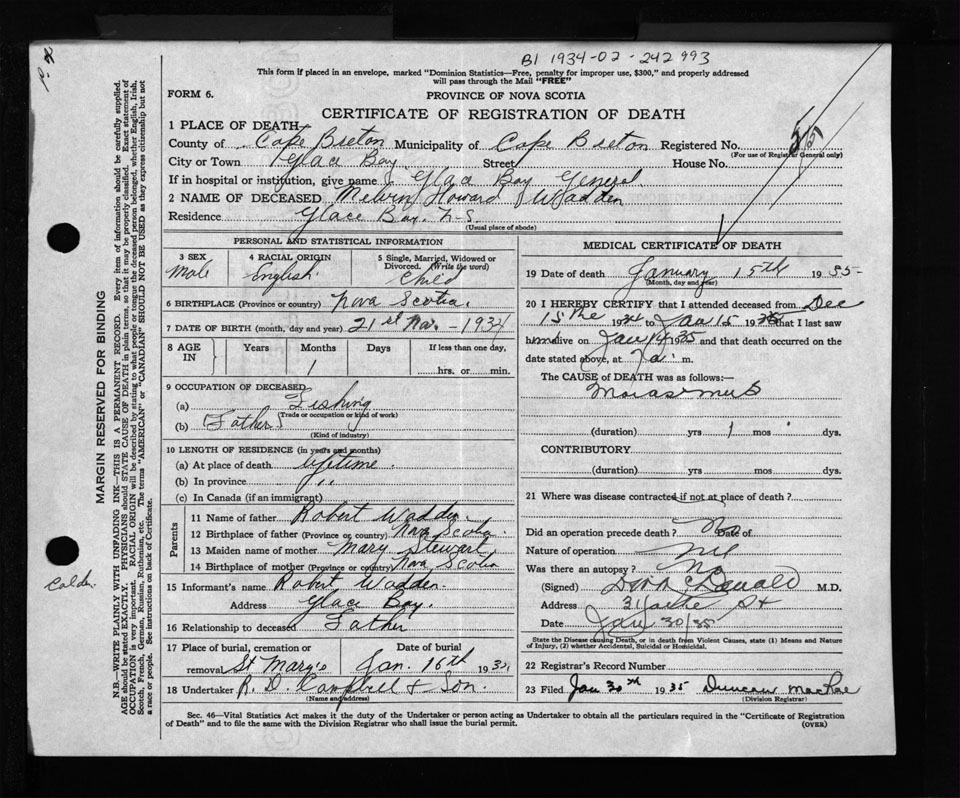 B1 1934-02-242993
This form if placed in an envelope, marked "Dominion Statistics—Free, penalty for improper use, $300," and properly addressed
will pass through the Mail "FREE"
FORM 6.
PROVINCE OF NOVA SCOTIA
CERTIFICATE OF REGISTRATION OF DEATH
1 PLACE OF DEATH—
County of Cape Breton Municipality of Cape Breton Registered No. 55
(For use of Registrar General only)
City or Town Glace Bay Street House No.
If in hospital or institution, give name Glace Bay General
2 NAME OF DECEASED Melvin Howard Wadden
Residence Glace Bay. N-S.
(Usual place of abode)
PERSONAL AND STATISTICAL INFORMATION
3 SEX
Male
4 RACIAL ORIGIN
English
5 Single, Married, Widowed or
Divorced. (Write the word)
Child
6 BIRTHPLACE (Province or country) Nova Scotia.
7 DATE OF BIRTH (month, day and year) 21st Nov. - 1934
8 AGE IN
Years
Months
1
Days
If less than one day,
hrs. or min.
9 OCCUPATION OF DECEASED
(a) Fishing
(Trade or occupation or kind of work)
(b) (Father)
(Kind of industry)
10 LENGTH OF RESIDENCE (in years and months)
(a) At place of death lifetime.
(b) In province " "
(c) In Canada (if an immigrant)
Parents
11 Name of father Robert Wadden.
12 Birthplace of father (Province or country) Nova Scotia.
13 Maiden name of mother Mary Stewart
14 Birthplace of mother (Province or country) Nova Scotia
15 Informant's name Robert Wadden.
Address Glace Bay.
16 Relationship to deceased Father
17 Place of burial, cremation or
removal St Mary's
Date of burial
Jan. 16th 193
18 Undertaker R. D. Campbell & Son.
(Name and address)
MEDICAL CERTIFICATE OF DEATH
19 Date of death January 15th 1935-
(Month, day and year)
20 I HEREBY CERTIFY that I attended deceased from Dec
15the 1934 to Jan 15 1935 that I last saw
him alive on Jan 14 1935 and that death occurred on the
date stated above, at 7 a. m.
The CAUSE of DEATH was as follows:—
Marasmus
(duration) yrs 1 mos dys.
CONTRIBUTORY
(duration) yrs mos dys.
21 Where was disease contracted if not at place of death?
Did an operation precede death? No Date of
Nature of operation nil
Was there an autopsy? No
(Signed) M.D.
Address St
Date Jan 30/35
State the Disease causing Death, or in death from Violent Causes, state (1) Means and Nature
of Injury, (2) whether Accidental, Suicidal or Homicidal.
22 Registrar's Record Number
23 Filed Jan 30th 1935 Duncan MacRae
(Division Registrar)
Sec. 46—Vital Statistics Act makes it the duty of the Undertaker or person acting as Undertaker to obtain all the particulars required in the "Certificate of Registration
of Death" and to file the same with the Division Registrar who shall issue the burial permit.
(OVER)
MARGIN RESERVED FOR BINDING
N.B.—WRITE PLAINLY WITH UNFADING INK—THIS IS A PERMANENT RECORD. Every item of information should be carefully supplied.
AGE should be stated EXACTLY. PHYSICIANS should STATE CAUSE OF DEATH in plain terms, so that it may be properly classified. Exact statement of
OCCUPATION is very important. RACIAL ORIGIN will be described by stating to what people or tongue the deceased person belonged, whether English, Irish,
Scotch, French, German, Russian, Ruthenian, etc. The terms "AMERICAN" or "CANADIAN" SHOULD NOT BE USED as they express citizenship but not
a race or people. See instructions on back of Certificate.